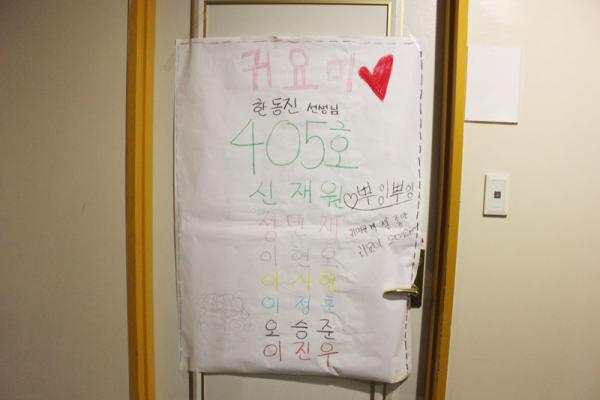 귀요미
한동진 선생님
405호
신재원 뿌잉뿌잉
정민재
이현오
이식현
이정훈
오승준
이진우